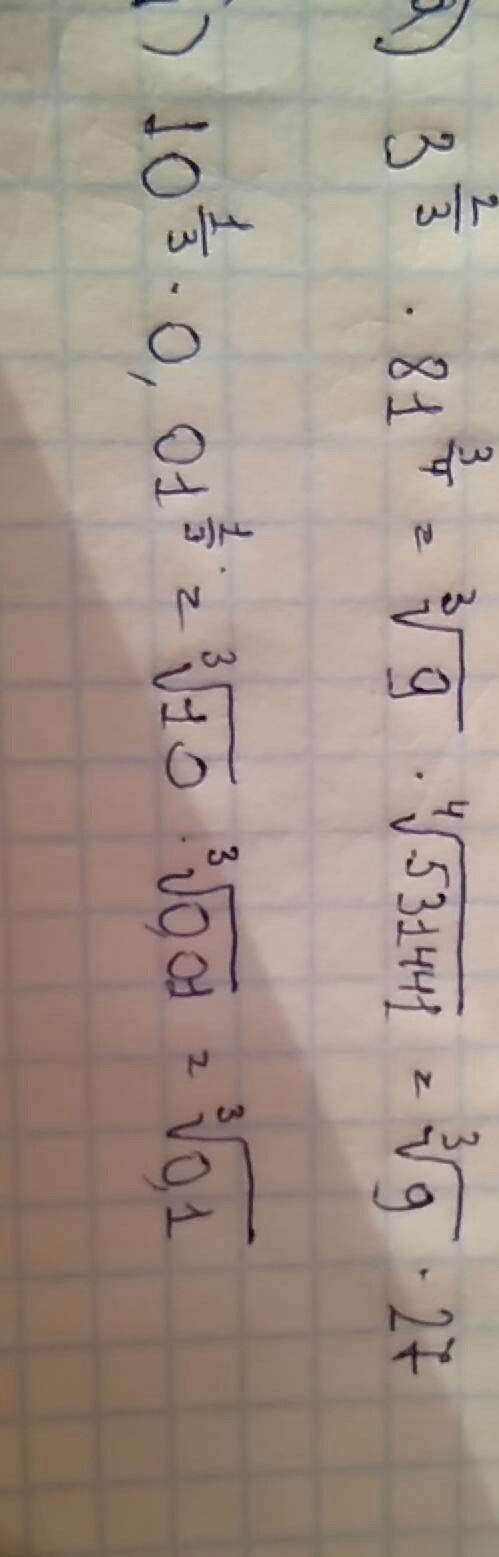 а) 3^{2/3} · 81^{3/4} = ∛9 · ∜531441 = ∛9 · 27
) 10^{1/3} · 0,01^{1/3} = ∛10 · ∛0,01 = ∛0,1